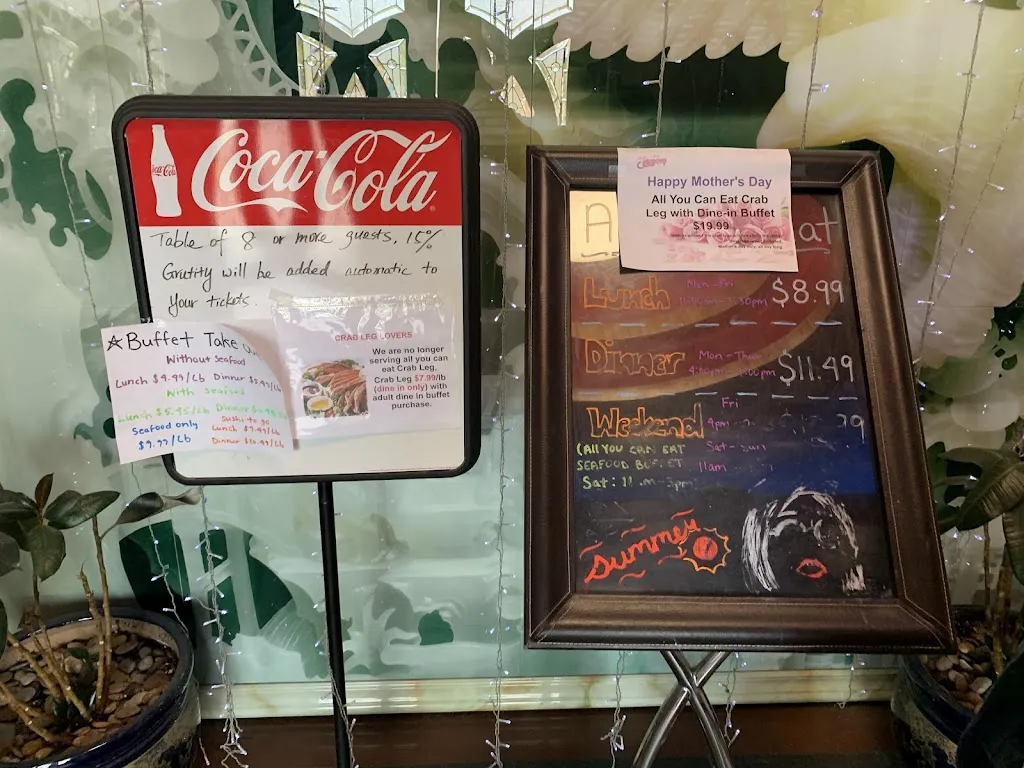 Coca-Cola
Coca-Cola
Table of 8 or more guests, 15%
Grutity will be added automatic to
Your tickets.
☆Buffet Take
Without Seafood
Lunch $4.99/Lb Dinner
With Seafood
Lunch $5.95/Lb Dinner
Seafood only
$9.99/Lb
Sushi to go
Lunch
Dinner
CRAB LEG LOVERS
We are no longer
serving all you can
eat Crab Leg,
Crab Leg $7.99/lb
(dine in only) with
adult dine in buffet
purchase.
Happy Mother's Day
All You Can Eat Crab
Leg with Dine-in Buffet
$19.99
A at
Lunch Mon-Fri $8.99
Dinner Mon-Thur $11.49
Weekend Fri
4pm
(All YOU CAN EAT
SEAFOOD BUFFET
Sat-Sun
11am
Sat: 11am-3pm
Summer